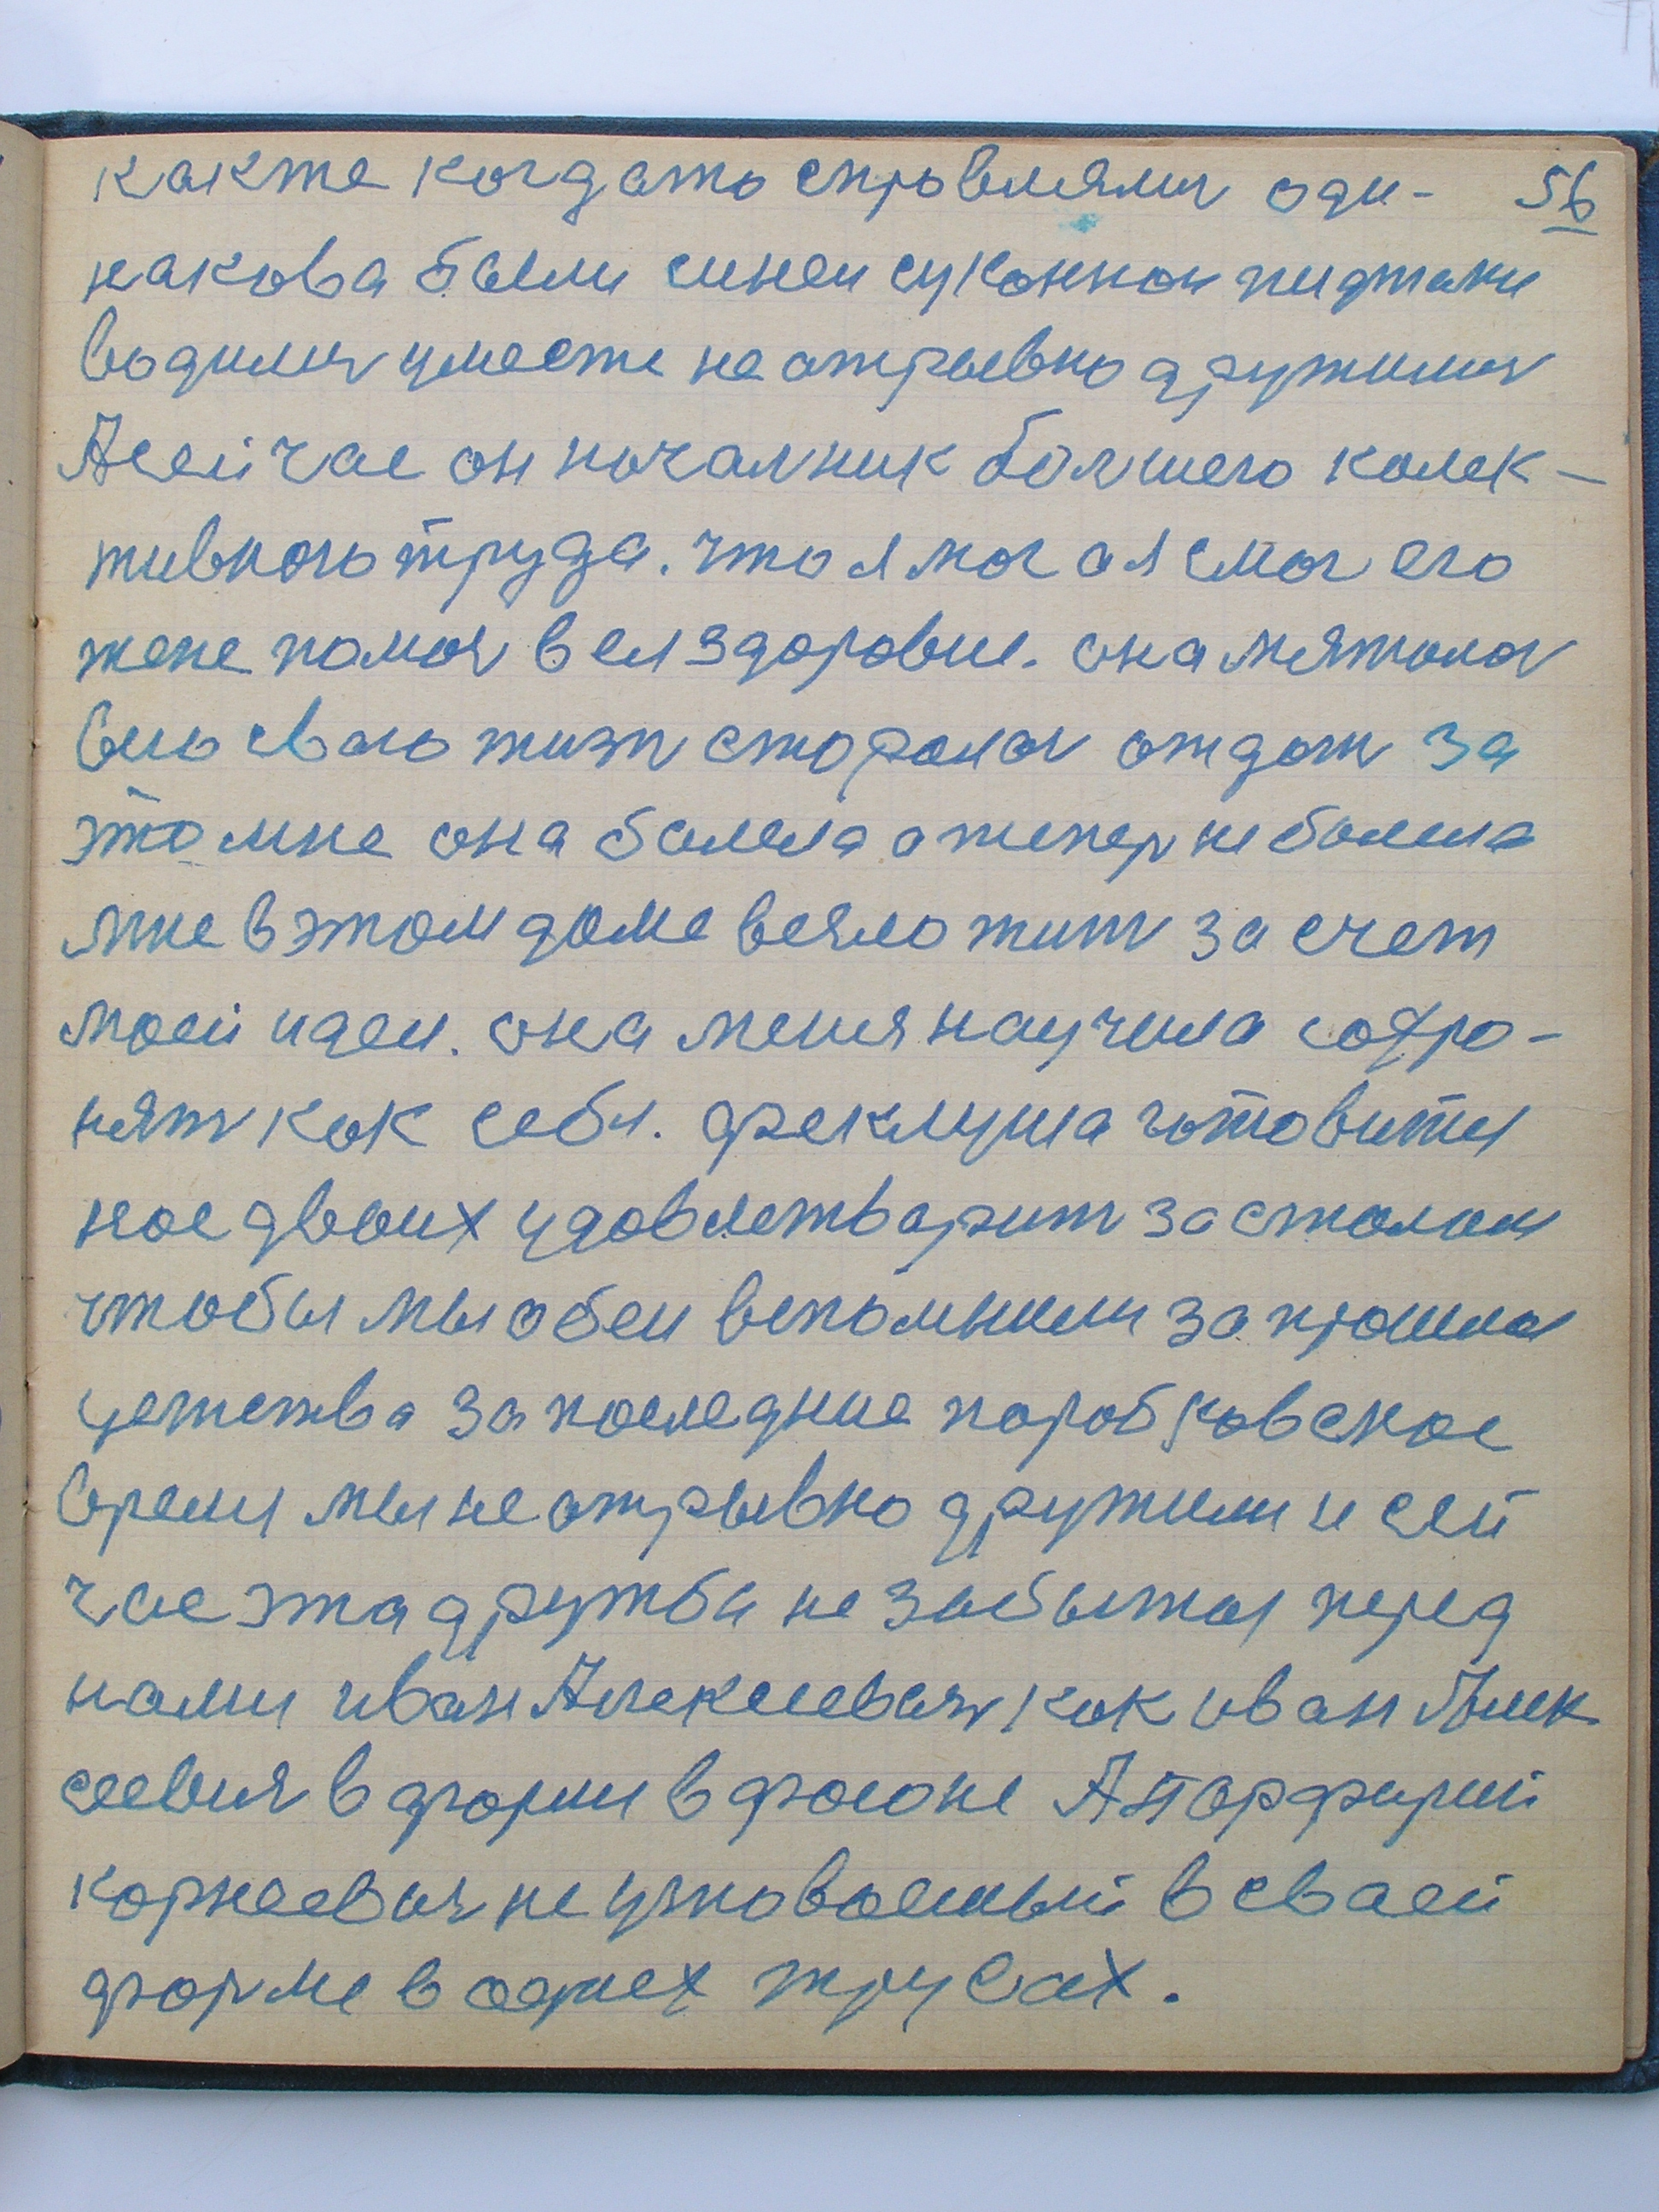 какже когдато справляли оди- 56
накова были синеи суконнои пиджаки
водили умести не атрывно дружили
Асейчас он началник болшего колек-
тивного труда. что я мог а я смог его
жене помоч в ея здоровии. она мятолоч
всю сваю жизн старалас отдат за
это мне она балела а тепер не болила
мне в этом доме веяло жит за счет
моей идеи. она меня научила сохро-
нят как себя. феклуша готовится
нас двоих удовлетварит за сталом
чтобы мы обеи вспомнили за прошлая
цетства за последние паробковское
время мы не отрывно дружили и сей
час эта дружба не забытая перед
нами иван Алексеевич как иван Алек
сеевич в форми в фасоне А парфирий
корнеевич не узноваемый в сваей
форме в однех трусах.